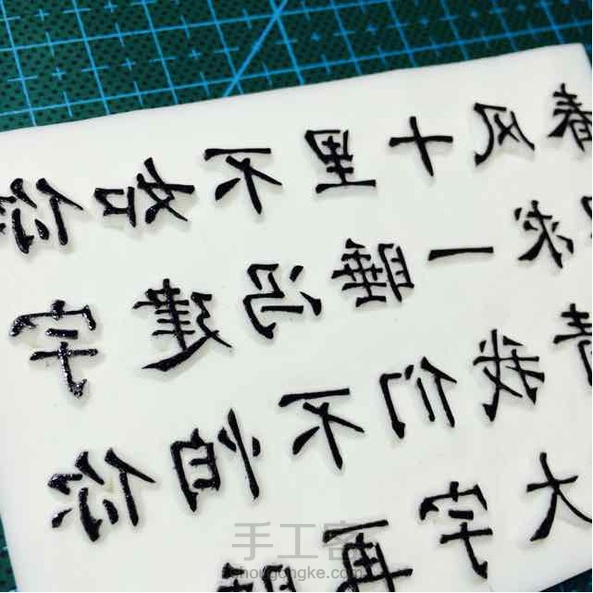 春风十里不如你
求一睡冯建宇
我们不怕你
大宇再睡
手工客
shougongke.com